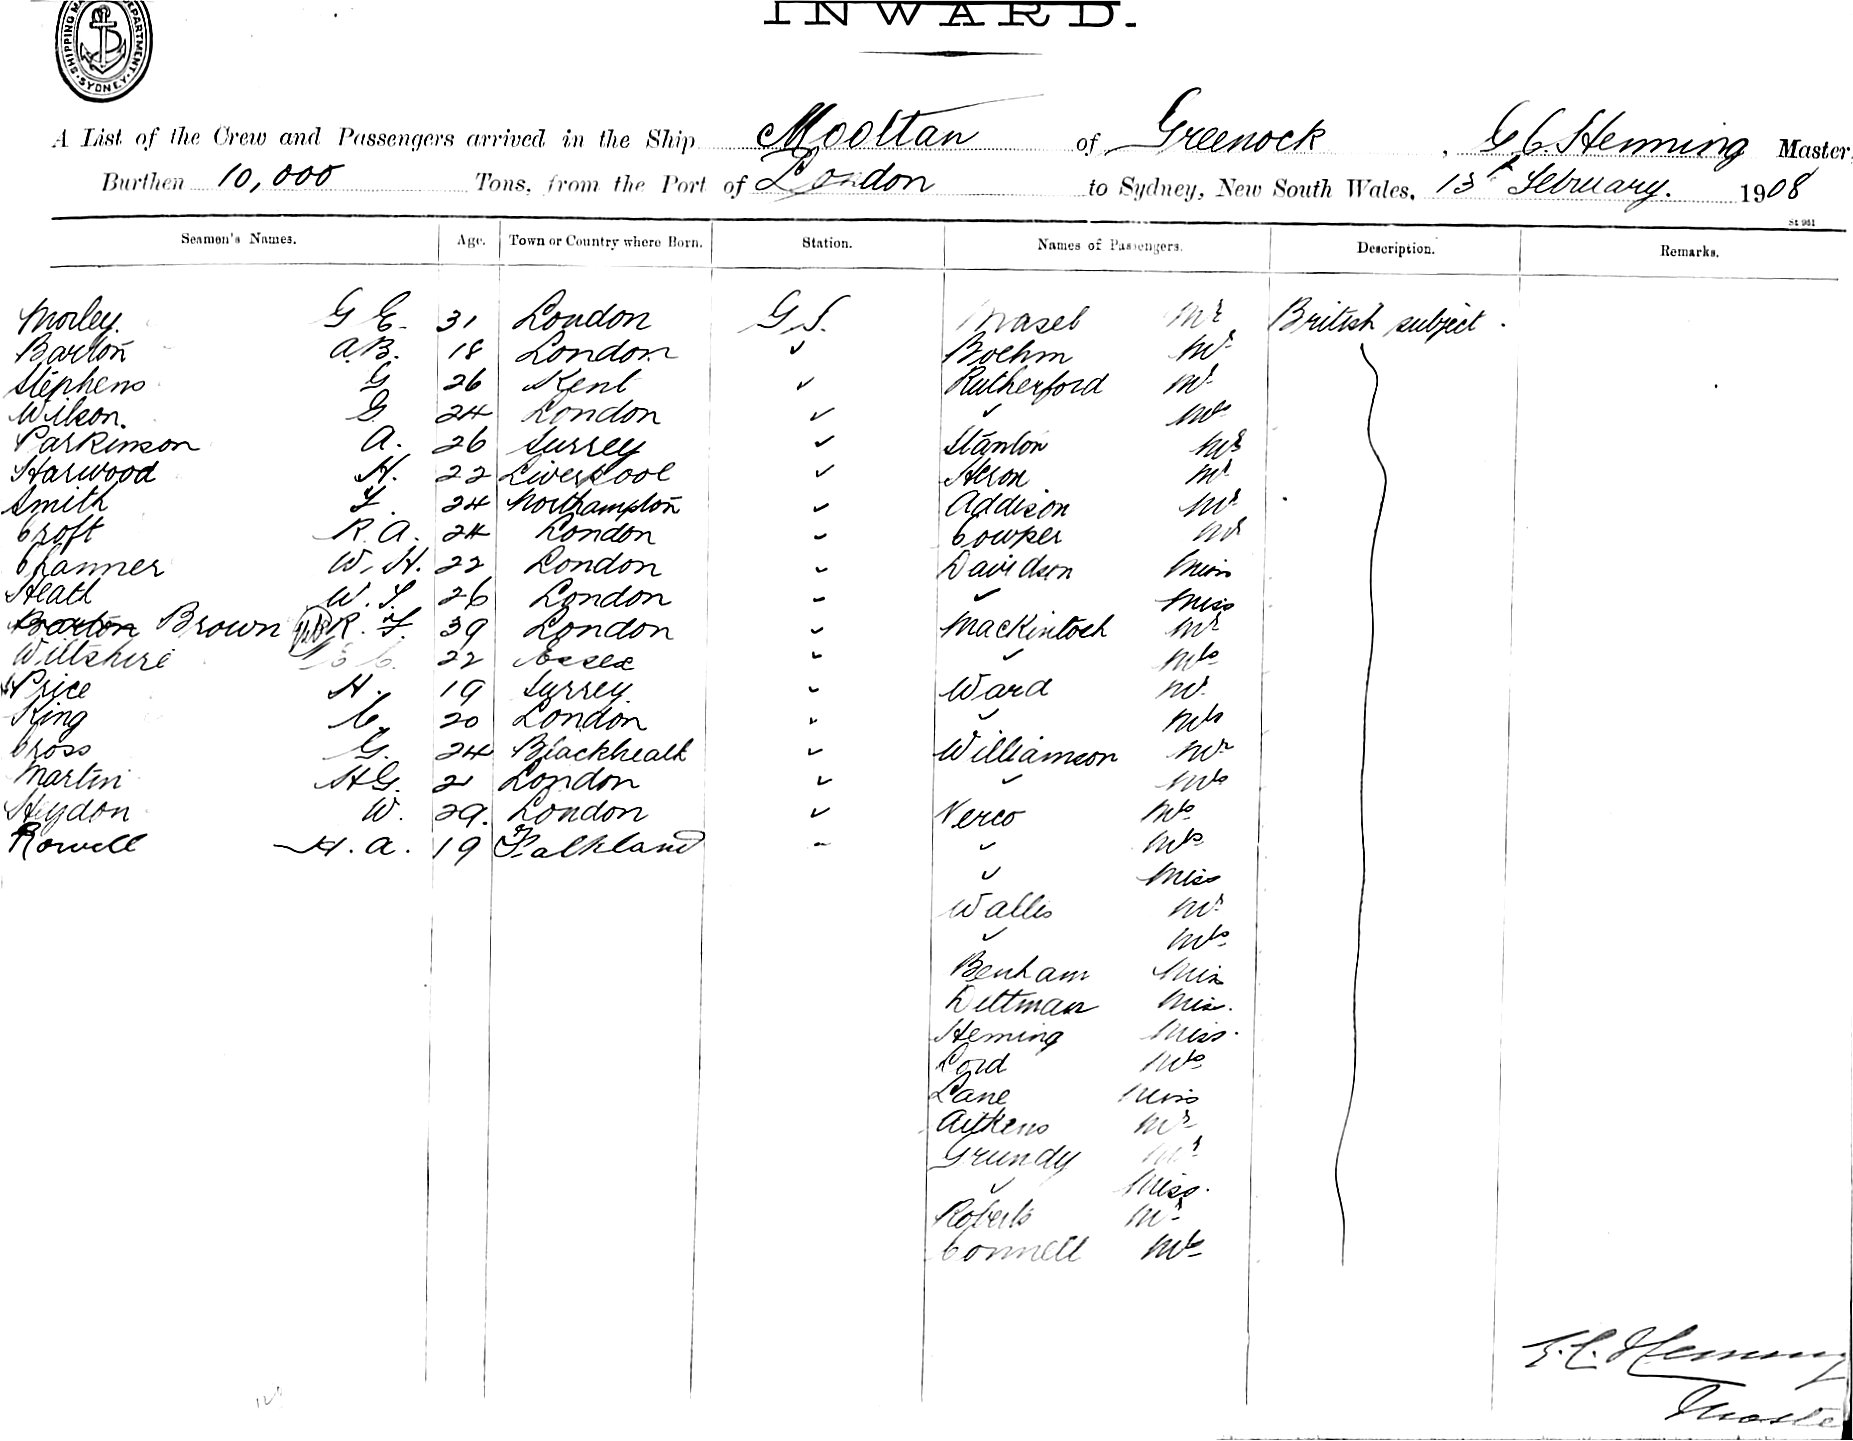 SHIPPING MASTER'S DEPARTMENT SYDNEY
INWARD.
A List of the Crew and Passengers arrived in the Ship Mooltan of Greenock, G C. Henning Master,
Burthen 10,000 Tons, from the Port of London to Sydney, New South Wales, 13th February. 1908
St 961
Seamen's Names. Age. Town or Country where Born. Station. Names of Passengers. Description. Remarks.
Morley. G E. 31 London G S. Mr British subject.
Barton A.B. 18 London ✓ Boehm Mr
Stephens G 26 Kent ✓ Rutherford Mr
Wilson. G 24 London ✓ ✓ Mrs
Parkinson A. 26 Surrey ✓ Stanton Mr
Harwood H. 22 Liverpool ✓ Heron Mr
Smith F. 24 Northampton ✓ Addison Mr
Croft R. A. 24 London ✓ Cowper Mr
Channer W. H. 22 London ✓ Davidson Miss
Heath W. F. 26 London ✓ ✓ Miss
Barton Brown R. F. 39 London ✓ Mackintosh Mr
Wiltshire C. 22 Essex ✓ ✓ Mrs
Price H. 19 Surrey ✓ Ward Mr
King C. 20 London ✓ ✓ Mrs
Cross G. 24 Blackheath ✓ Williamson Mr
Martin H G. 21 London ✓ ✓ Mrs
Heydon W. 29. London ✓ Verco Mr
Rowell H. A. 19 Falkland ✓ ✓ Mrs
✓ Miss
Wallis Mr
✓ Mrs
Benham Miss
Dittman Miss.
Heming Miss.
Lord Mrs
Lane Miss
Aitkens Mr
Grundy Mr
✓ Miss.
Roberts Mr
Connell Mrs
G. C. Henning
Master